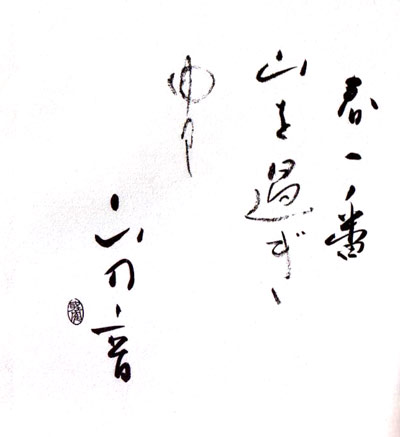 春一番
山を過ぎ
ゆく
山の音